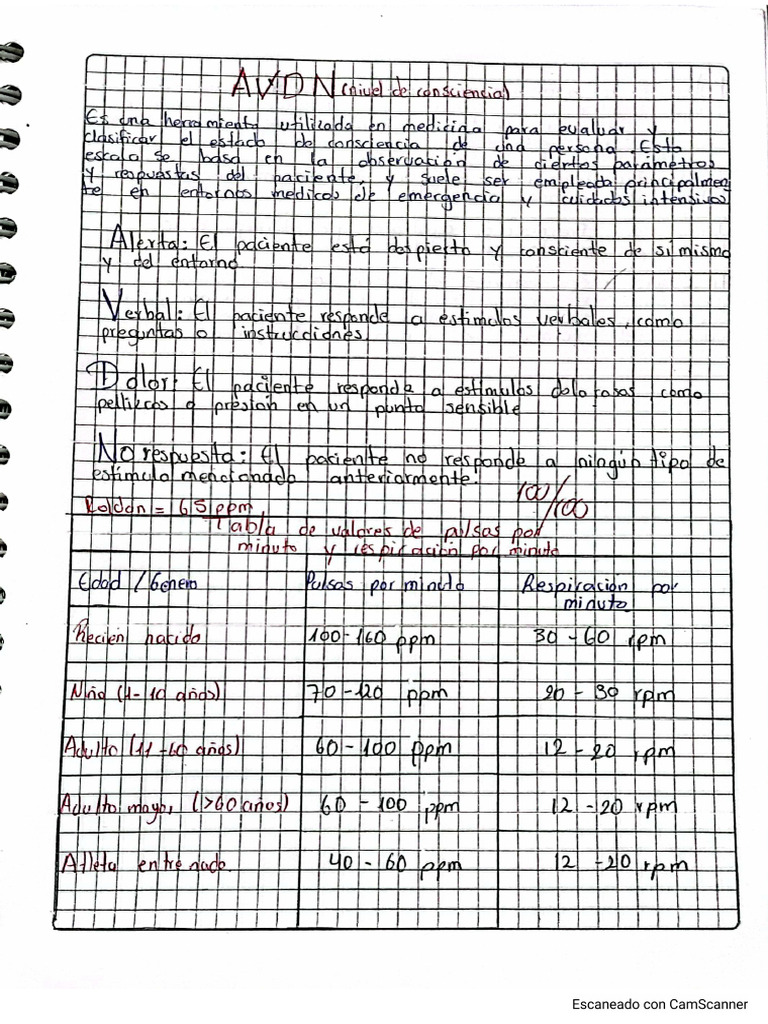 AVDN (nivel de consciencia)
Es una herramienta utilizada en medicina para evaluar y
clasificar el estado de consciencia de una persona. Esta
escala se basa en la observación de ciertos parámetros
y respuestas del paciente, y suele ser empleada principalmen
te en entornos medicos de emergencia y cuidados intensivos
Alerta: El paciente está despierto y consciente de sí mismo
y del entorno
Verbal: El paciente responde a estimulos verbales, como
preguntas o instrucciones
Dolor: El paciente responde a estímulos dolorosos, como
pellizcos o presión en un punto sensible
No respuesta: El paciente no responde a ningún tipo de
estímulo mencionado anteriormente.
100/100
Roldan = 65 ppm
Tabla de valores de pulsas por
minuto y respiración por minuto
Edad / Genero Pulsas por minuto Respiración por
minuto
Recien nacido 100-160 ppm 30-60 rpm
Niño (1-10 años) 70-120 ppm 20-30 rpm
Adulto (11-60 años) 60-100 ppm 12-20 rpm
Adulto mayor (>60 años) 60-100 ppm 12-20 rpm
Atleta entrenado 40-60 ppm 12-20 rpm
Escaneado con CamScanner